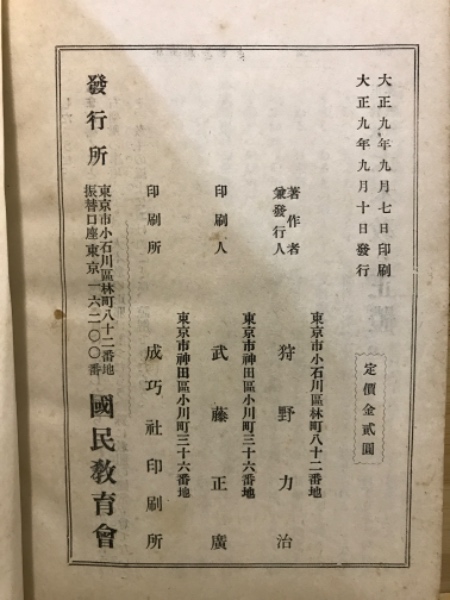 大正九年九月七日印刷
大正九年九月十日發行
定價金貳圓
著作者
兼發行人
東京市小石川區林町八十二番地
狩野力治
印刷人
東京市神田區小川町三十六番地
武藤正廣
印刷所
東京市神田區小川町三十六番地
成巧社印刷所
發行所
東京市小石川區林町八十二番地
振替口座東京一六二〇〇番
國民敎育會